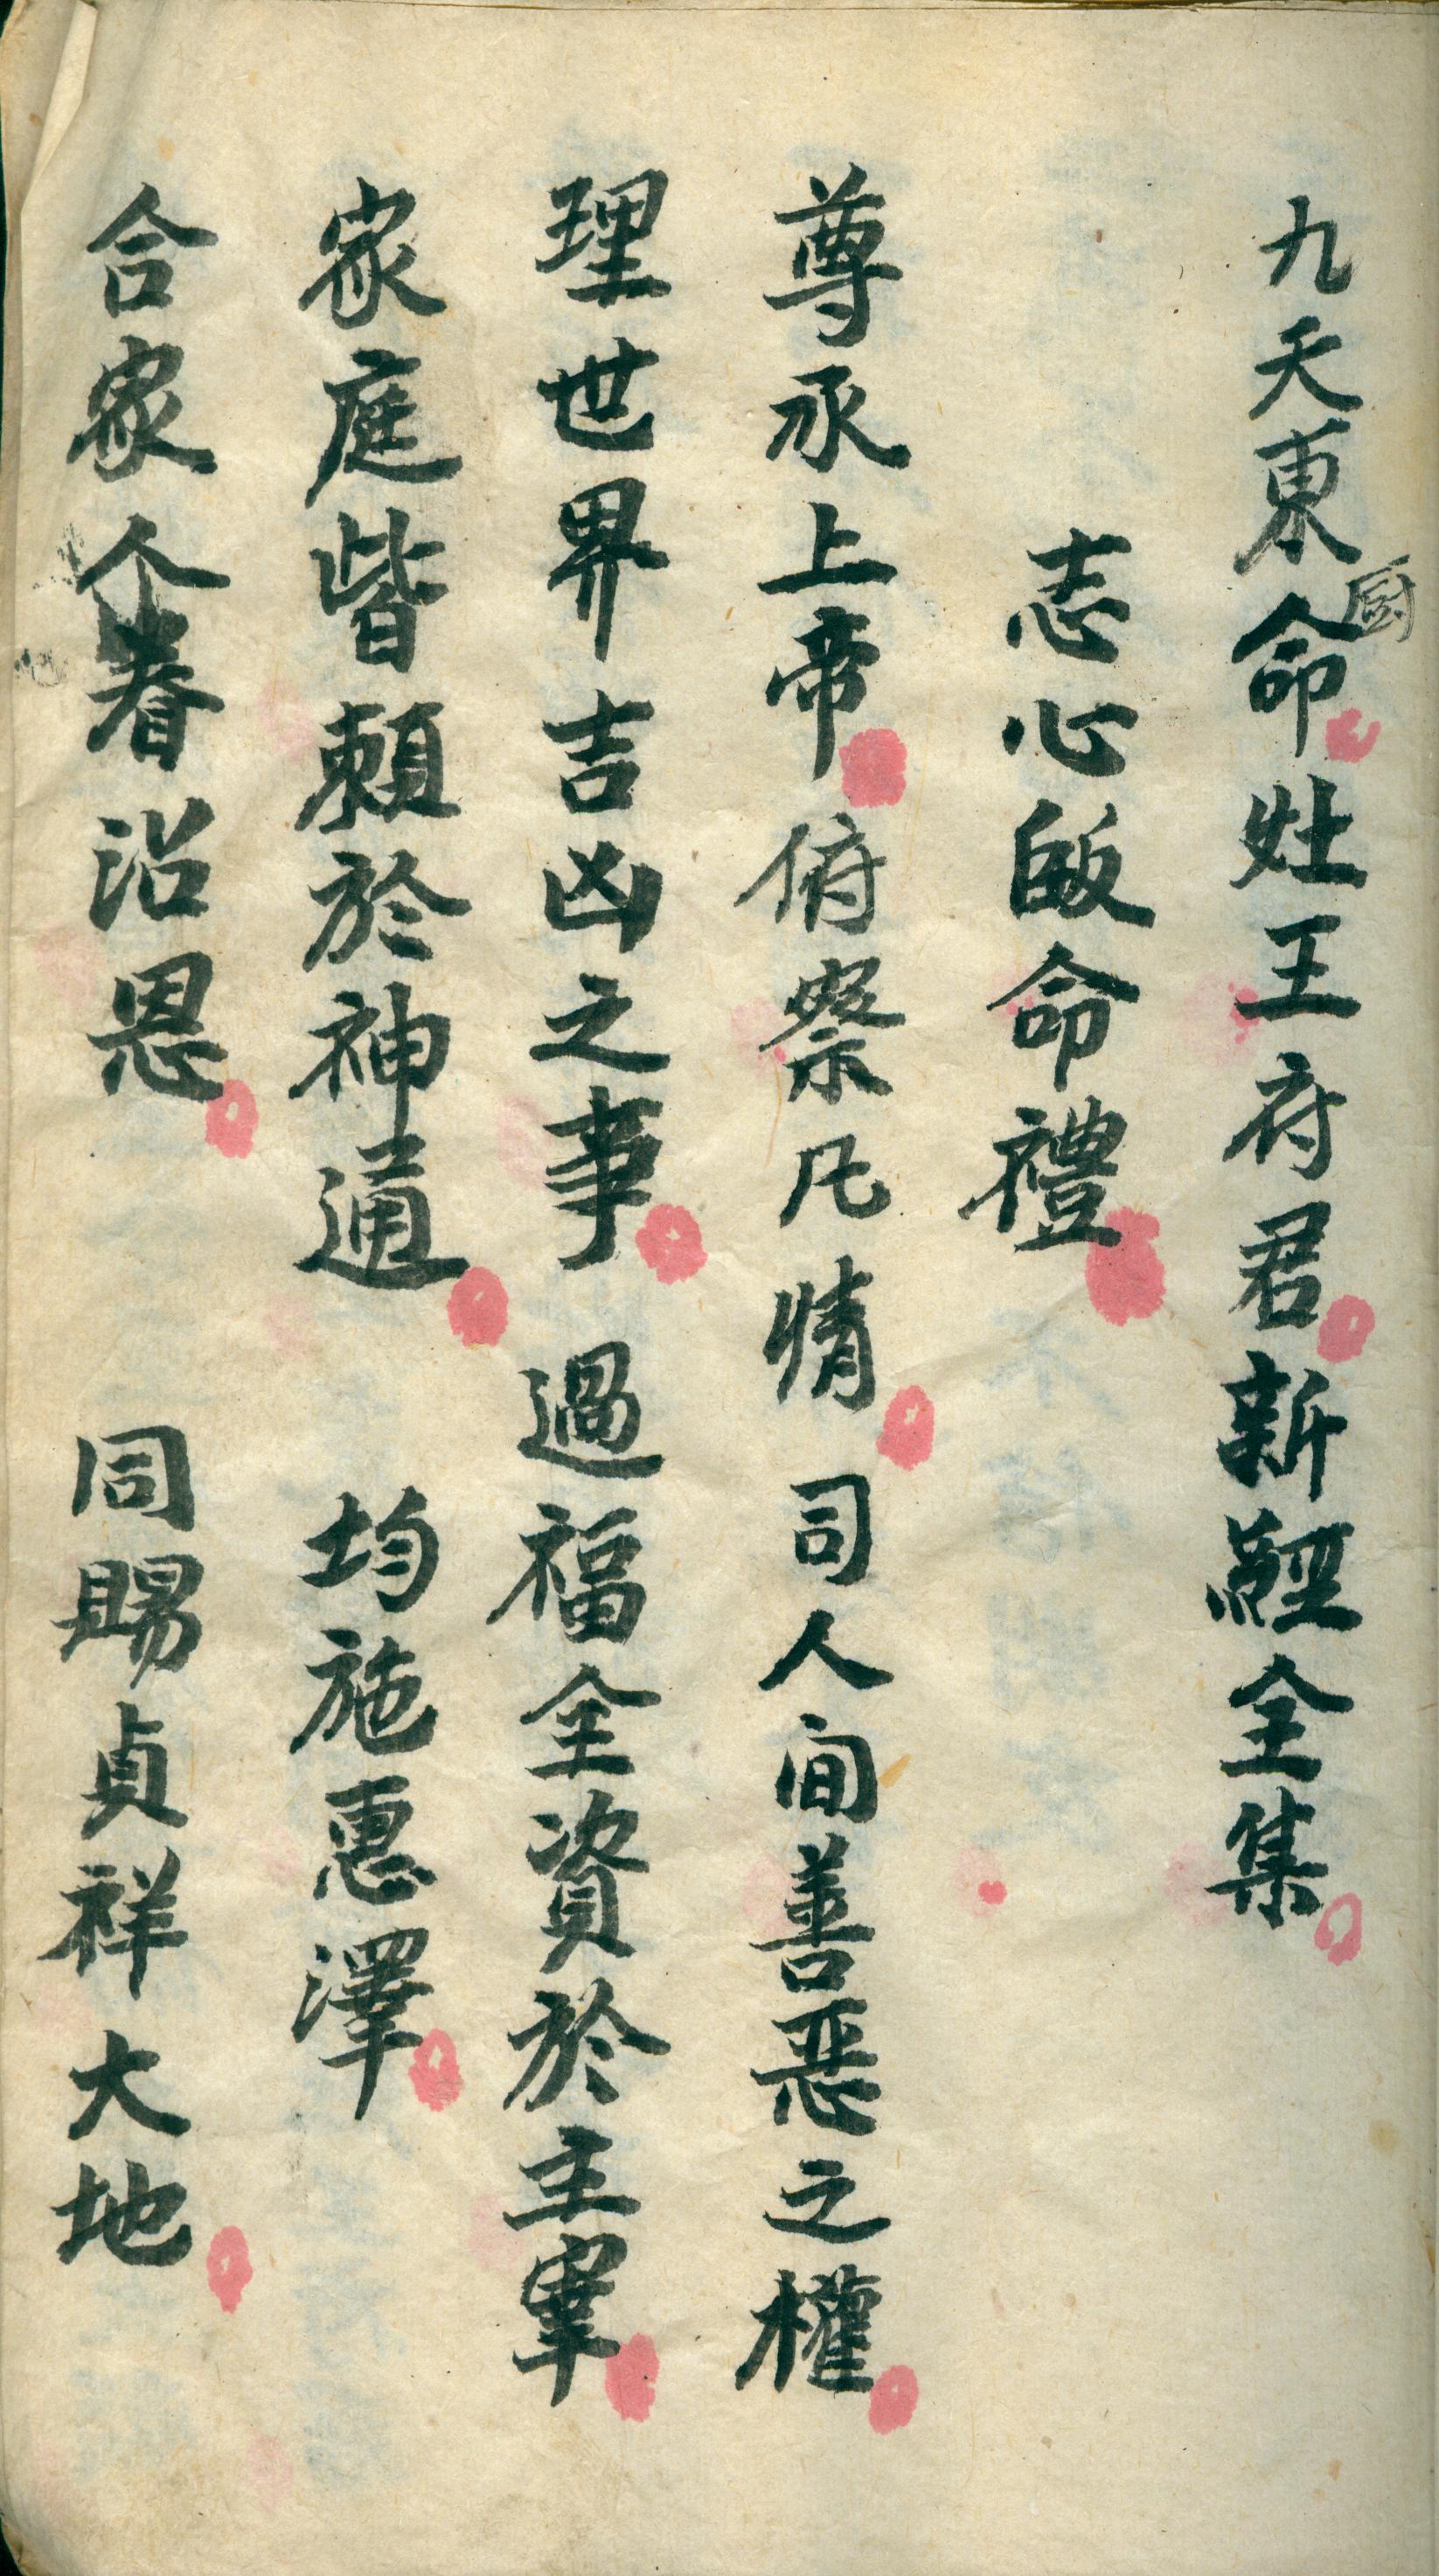 九天東厨命灶王府君新經全集
志心皈命禮
尊承上帝俯察凡情司人間善惡之權
理世界吉凶之事過福全資於主宰
家庭皆賴於神通均施惠澤
合家个眷沿恩同賜貞祥大地